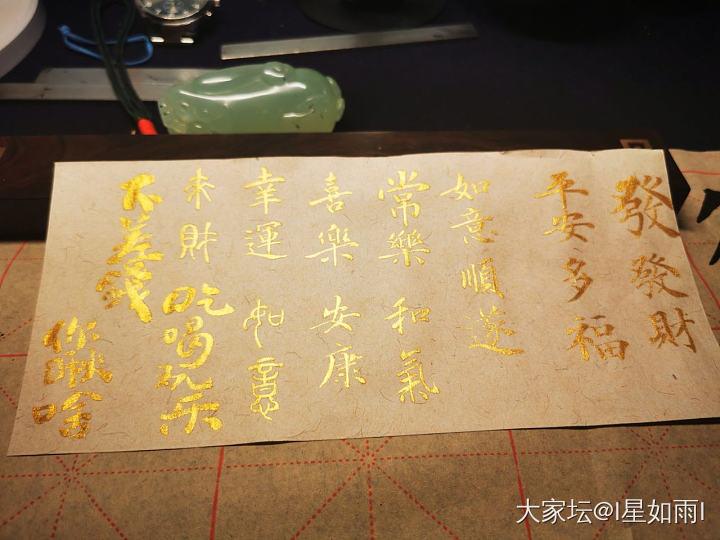 發發財
平安多福
如意順遂
常樂和氣
喜樂安康
幸運如意
來財吃喝玩乐
不差钱
你瞅啥
大家坛@I星如雨I